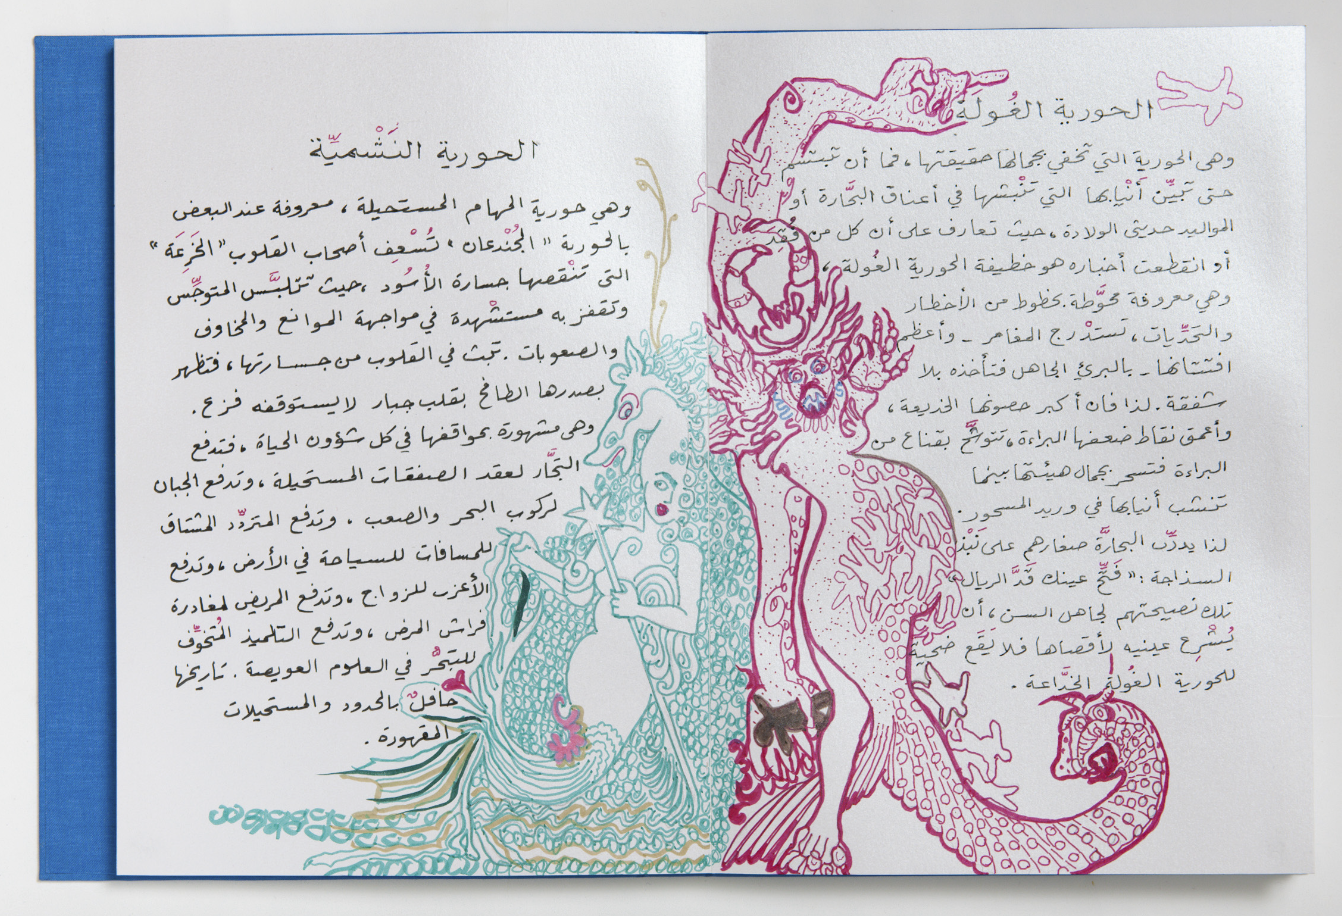 الحورية الغُولَة
وهي الحورية التي تخفي بجمالها حقيقتها، فما أن تبتسم
حتى تَبيِّن أنْيابها التي تنْبشها في أعناق البحَّارة أو
المواليد حديثي الولادة، حيث تعارف على أن كل من فُقِد
أو انقطعت أخباره هو خطيفة الحورية الغُولة،
وهي معروفة محوَّطة بخطوط من الأخطار
والتحَدِّيات، تستدْرج المغامر - وأعظم
افتتانها - بالبريْ الجاهل فتأخذه بلا
شفقة. لذا فان أكبر حصونها الخديعة،
وأعمق نقاط ضعفها البراءة، تتوشَّح بقناع من
البراءة فتسحر بجمال هيئتها بينما
تنشب أنيابها في وريد المسحور.
لذا يدرِّب البحارَّة صغارهم على نَبْذ
السذاجة: "فَتِّح عينك قدَّ الريال"
تلك نصيحتهم لجاهل السن، أن
يُشْرِع عينيه لأقصاها فلا يَقَع ضحيَّة
للحورية الغُولة الخدَّاعة.
الحورية النَشْميَّة
وهي حورية المهام المستحيلة، معروفة عند البعض
بالحورية "الجُنْدعان" تُسْعِف أصحاب القلوب "الخَرِعَة"
التي تنْقصها جسارة الأُسُود، حيث تتلبَّس المتوجِّس
وتقفز به مستشْهدة في مواجهة الموانع والمخاوف
والصعوبات. تبث في القلوب من جسارتها، فتظهر
بصدرها الطافح بقلب جبار لا يستوقفه فزع.
وهي مشهورة بمواقفها في كل شؤون الحياة، فتدفع
التجَّار لعقد الصفقات المستحيلة، وتدفع الجبان
لركوب البحر والصعب، وتدفع المتردِّد المشتاق
للمسافات للسياحة في الأرض، وتدفع
الأعزب للزواج، وتدفع المريض لمغادرة
فراش المرض، وتدفع التلميذ المُتخوِّف
للتبحُّر في العلوم العويصة. تاريخها
حافلٌ بالحدود والمستحيلات
المقهورة.